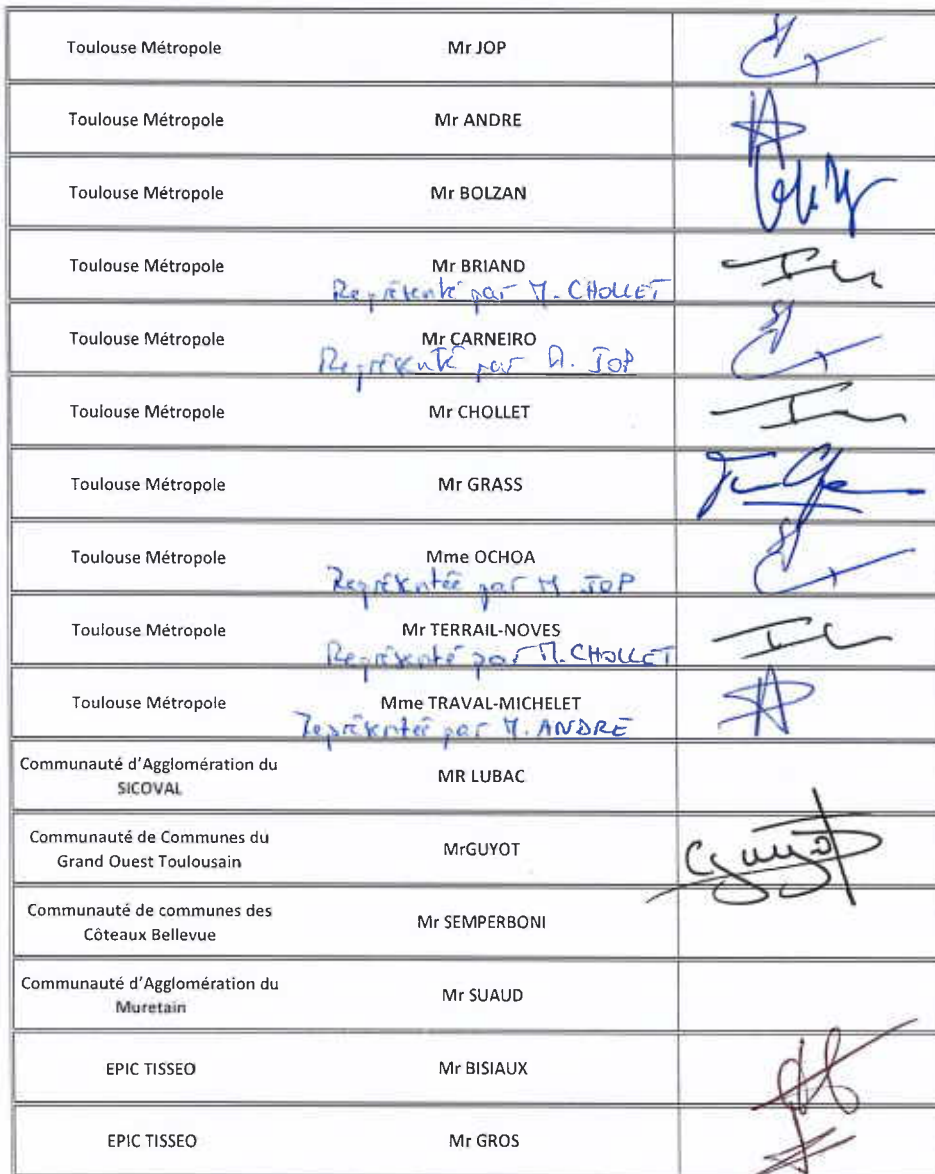 Toulouse Métropole Mr JOP
Toulouse Métropole Mr ANDRE
Toulouse Métropole Mr BOLZAN
Toulouse Métropole Mr BRIAND
Représenté par M. CHOLLET
Toulouse Métropole Mr CARNEIRO
Représenté par M. JOP
Toulouse Métropole Mr CHOLLET
Toulouse Métropole Mr GRASS
Toulouse Métropole Mme OCHOA
Représentée par M. JOP
Toulouse Métropole Mr TERRAIL-NOVES
Représenté par M. CHOLLET
Toulouse Métropole Mme TRAVAL-MICHELET
Représentée par M. ANDRÉ
Communauté d'Agglomération du
SICOVAL MR LUBAC
Communauté de Communes du
Grand Ouest Toulousain MrGUYOT
Cguyot
Communauté de communes des
Côteaux Bellevue Mr SEMPERBONI
Communauté d'Agglomération du
Muretain Mr SUAUD
EPIC TISSEO Mr BISIAUX
EPIC TISSEO Mr GROS